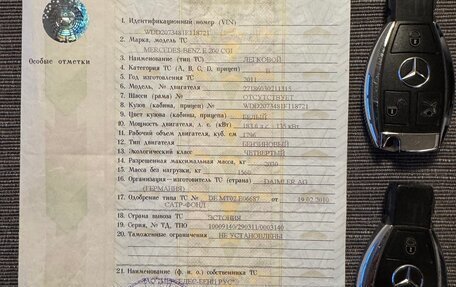 1. Идентификационный номер (VIN)
WDD2073481F118721
2. Марка, модель ТС
MERCEDES-BENZ E 200 CGI
Особые отметки
3. Наименование (тип ТС) ЛЕГКОВОЙ
4. Категория ТС (А, В, С, D, прицеп) B
5. Год изготовления ТС 2011
6. Модель, № двигателя 27186030711315
7. Шасси (рама) № ОТСУТСТВУЕТ
8. Кузов (кабина, прицеп) № WDD2073481F118721
9. Цвет кузова (кабины, прицепа) БЕЛЫЙ
10. Мощность двигателя, л. с. (кВт) 183.6 л.с. 135 кВт
11. Рабочий объем двигателя, куб. см 1796
12. Тип двигателя БЕНЗИНОВЫЙ
13. Экологический класс ЧЕТВЕРТЫЙ
14. Разрешенная максимальная масса, кг 2030
15. Масса без нагрузки, кг 1560
16. Организация—изготовитель ТС (страна) DAIMLER AG
(ГЕРМАНИЯ)
17. Одобрение типа ТС № DE.MT02.E06687 от 19.02.2010
САТР-ФОНД
18. Страна вывоза ТС ЭСТОНИЯ
19. Серия, № ТД, ТПО 10009140/290311/0003140
20. Таможенные ограничения НЕ УСТАНОВЛЕНЫ
21. Наименование (ф. и. о.) собственника ТС